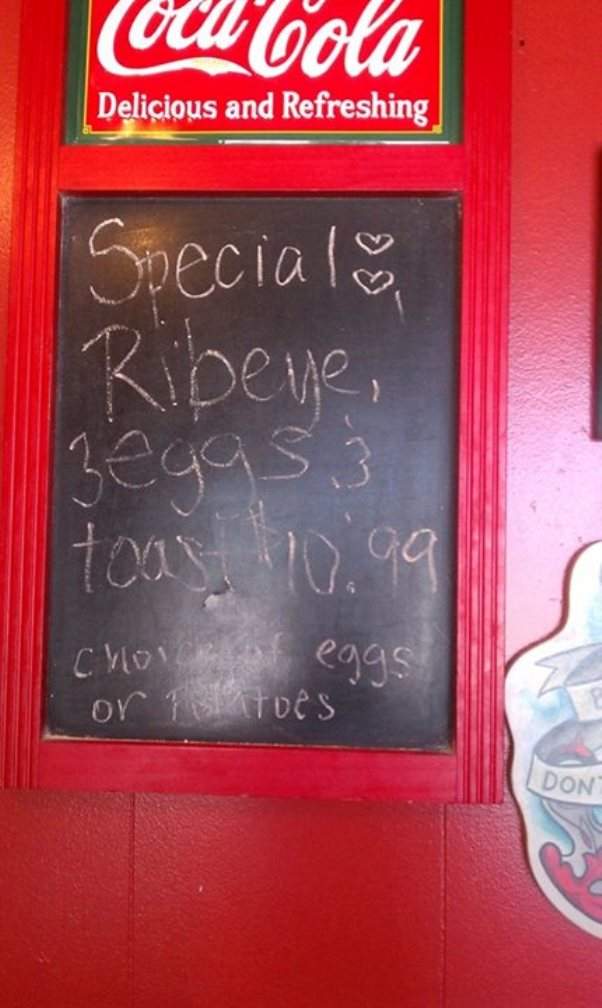 Coca-Cola
Delicious and Refreshing
Special
Ribeye,
3 eggs &
toast $10.99
choice of eggs
or Potatoes
DON'T